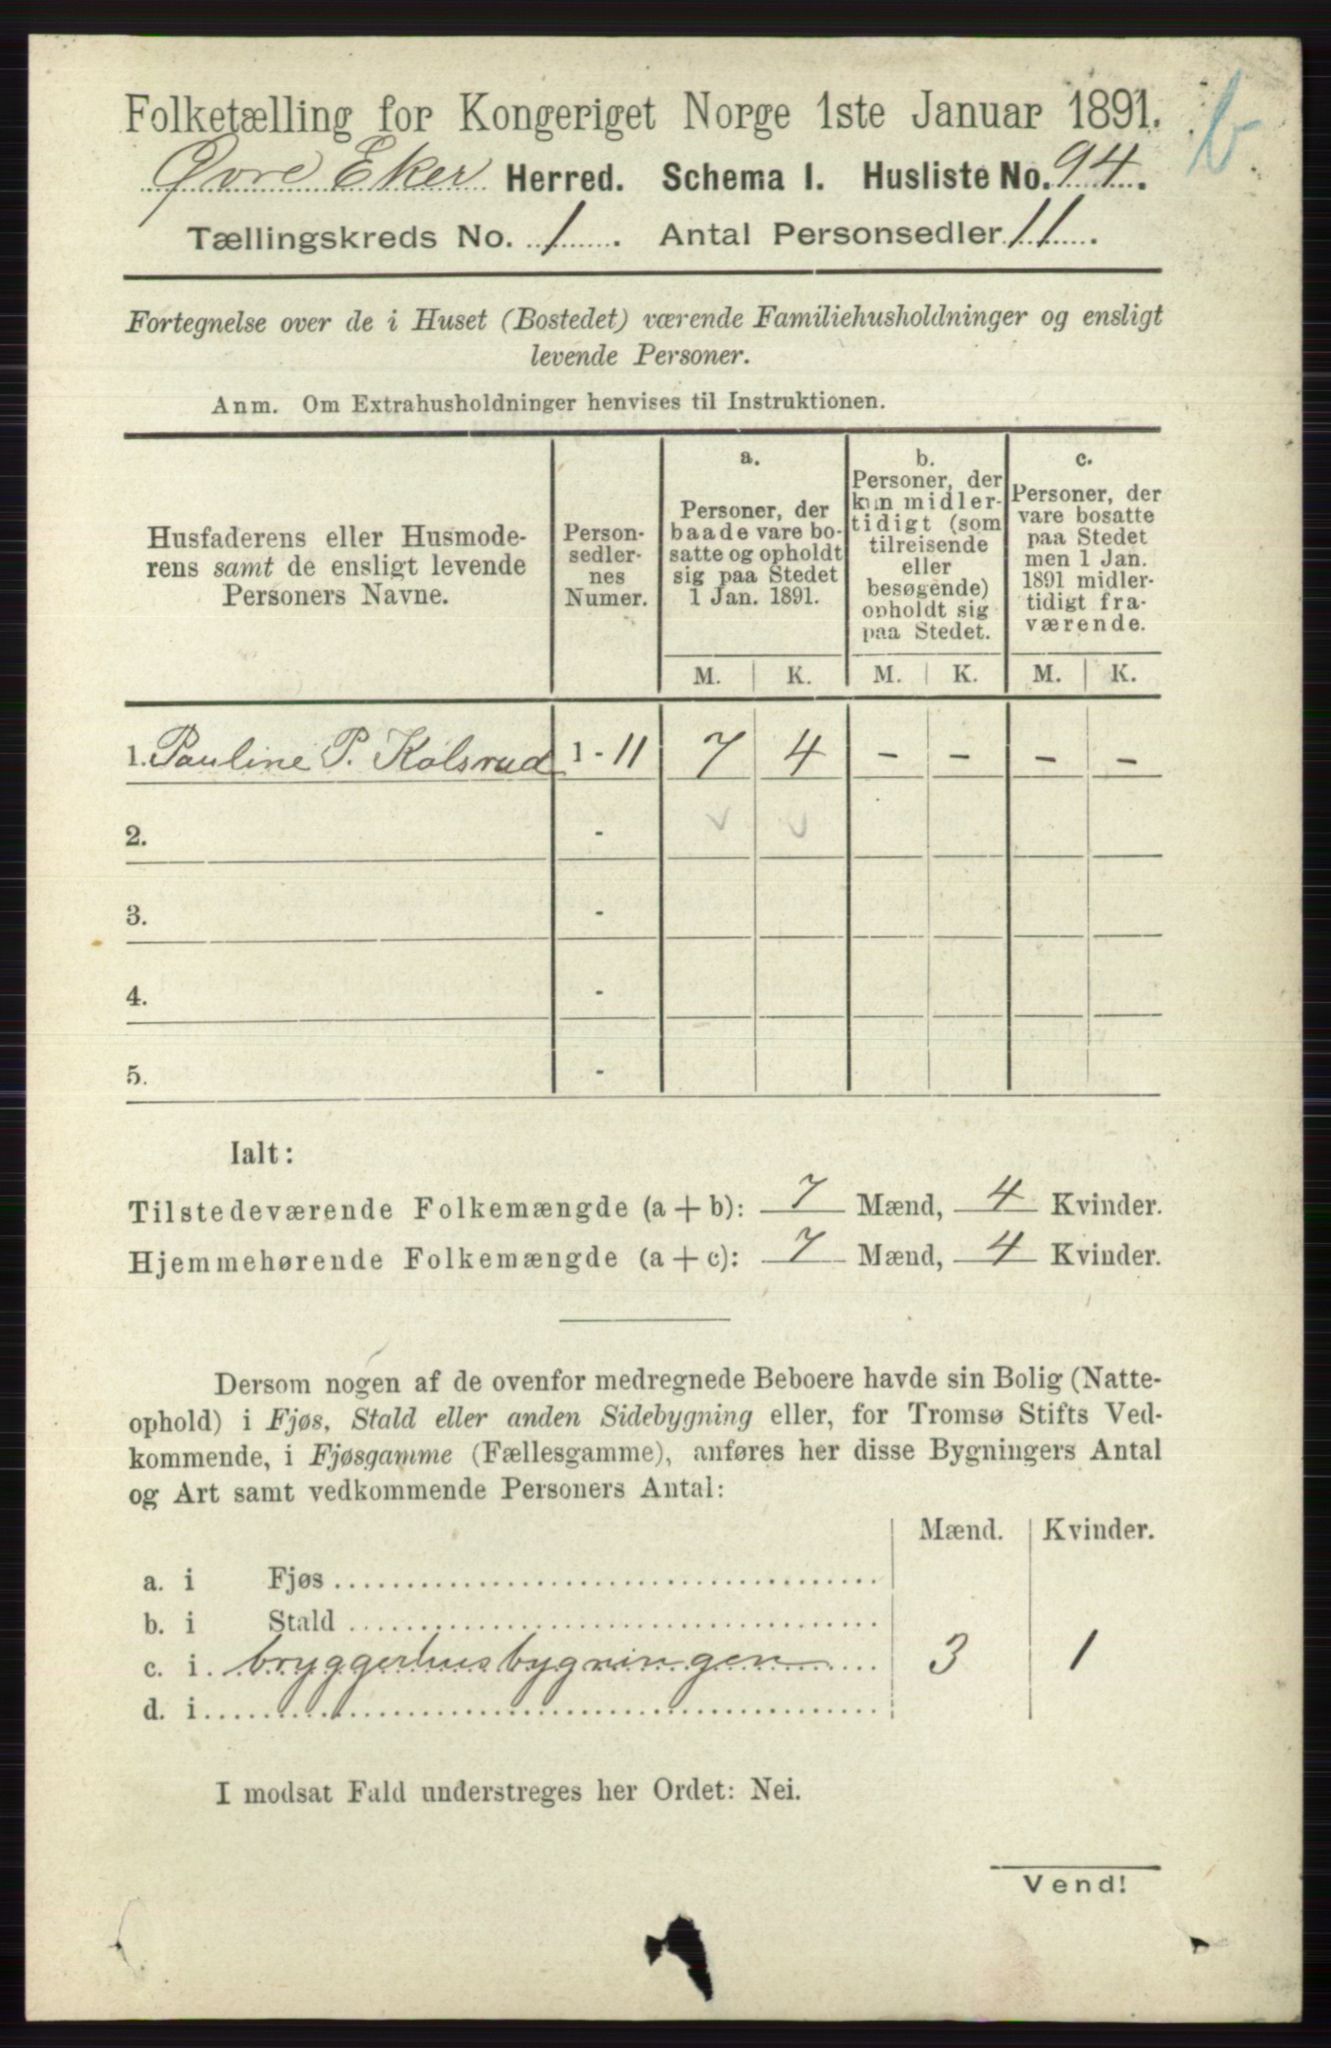 Folketælling for Kongeriget Norge 1ste Januar 1891.
b
Øvre Eker Herred. Schema 1. Husliste No. 94.
Tællingskreds No. 1. Antal Personsedler 11.
Fortegnelse over de i Huset (Bostedet) værende Familiehusholdninger og ensligt
levende Personer.
Anm. Om Extrahusholdninger henvises til Instruktionen.
Husfaderens eller Husmode-
rens samt de ensligt levende
Personers Navne.
Person-
sedler-
nes
Numer.
a.
Personer, der
baade vare bo-
satte og opholdt
sig paa Stedet
1 Jan. 1891.
b.
Personer, der
kun midler-
tidigt (som
tilreisende
eller
besøgende)
opholdt sig
paa Stedet.
c.
Personer, der
vare bosatte
paa Stedet
men 1 Jan.
1891 midler-
tidigt fra-
værende.
M. K. M. K. M. K.
1. Pauline P. Kolsrud 1 - 11 7 4 - - - -
2. -
3. -
4. -
5. -
Ialt:
Tilstedeværende Folkemængde (a + b): 7 Mænd, 4 Kvinder.
Hjemmehørende Folkemængde (a + c): 7 Mænd, 4 Kvinder.
Dersom nogen af de ovenfor medregnede Beboere havde sin Bolig (Natte-
ophold) i Fjøs, Stald eller anden Sidebygning eller, for Tromsø Stifts Ved-
kommende, i Fjøsgamme (Fællesgamme), anføres her disse Bygningers Antal
og Art samt vedkommende Personers Antal:
Mænd. Kvinder.
a. i Fjøs
b. i Stald
c. i bryggerhusbygningen 3 1
d. i
I modsat Fald understreges her Ordet: Nei.
Vend!